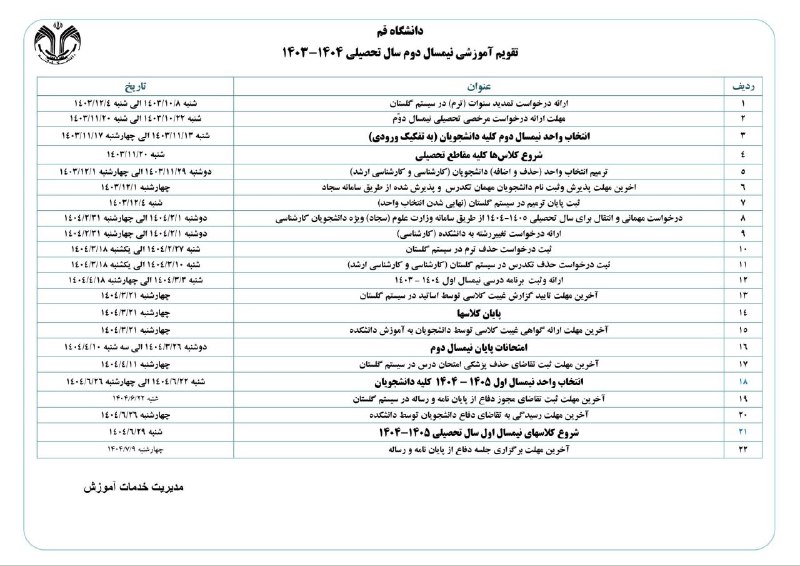 دانشگاه قم
تقویم آموزشی نیمسال دوم سال تحصیلی ۱۴۰۴-۱۴۰۳
ردیف عنوان تاریخ
۱ ارائه درخواست تمدید سنوات (ترم) در سیستم گلستان شنبه ۱۴۰۳/۱۰/۸ الی شنبه ۱۴۰۳/۱۲/۴
۲ مهلت ارائه درخواست مرخصی تحصیلی نیمسال دوّم شنبه ۱۴۰۳/۱۰/۲۲ الی شنبه ۱۴۰۳/۱۱/۲۰
۳ انتخاب واحد نیمسال دوم کلیه دانشجویان (به تفکیک ورودی) شنبه ۱۴۰۳/۱۱/۱۳ الی چهارشنبه ۱۴۰۳/۱۱/۱۷
۴ شروع کلاس‌ها کلیه مقاطع تحصیلی شنبه ۱۴۰۳/۱۱/۲۰
۵ ترمیم انتخاب واحد (حذف و اضافه) دانشجویان (کارشناسی و کارشناسی ارشد) دوشنبه ۱۴۰۳/۱۱/۲۹ الی چهارشنبه ۱۴۰۳/۱۲/۱
۶ اخرین مهلت پذیرش وثبت نام دانشجویان مهمان تکدرس و پذیرش شده از طریق سامانه سجاد چهارشنبه ۱۴۰۳/۱۲/۱
۷ ثبت پایان ترمیم در سیستم گلستان (نهایی شدن انتخاب واحد) شنبه ۱۴۰۳/۱۲/۴
۸ درخواست مهمانی و انتقال برای سال تحصیلی ۱۴۰۵-۱۴۰۴ از طریق سامانه وزارت علوم (سجاد) ویژه دانشجویان کارشناسی دوشنبه ۱۴۰۴/۲/۱ الی چهارشنبه ۱۴۰۴/۲/۳۱
۹ ارائه درخواست تغییررشته به دانشکده (کارشناسی) دوشنبه ۱۴۰۴/۲/۱ الی چهارشنبه ۱۴۰۴/۲/۳۱
۱۰ ثبت درخواست حذف ترم در سیستم گلستان شنبه ۱۴۰۴/۲/۲۷ الی یکشنبه ۱۴۰۴/۳/۱۸
۱۱ ثبت درخواست حذف تکدرس در سیستم گلستان (کارشناسی و کارشناسی ارشد) شنبه ۱۴۰۴/۳/۱۰ الی یکشنبه ۱۴۰۴/۳/۱۸
۱۲ ارائه وثبت برنامه درسی نیمسال اول ۱۴۰۴ - ۱۴۰۳ شنبه ۱۴۰۴/۳/۳ الی چهارشنبه ۱۴۰۴/۴/۱۸
۱۳ آخرین مهلت تایید گزارش غیبت کلاسی توسط اساتید در سیستم گلستان چهارشنبه ۱۴۰۴/۳/۲۱
۱۴ پایان کلاسها چهارشنبه ۱۴۰۴/۳/۲۱
۱۵ آخرین مهلت ارائه گواهی غیبت کلاسی توسط دانشجویان به آموزش دانشکده چهارشنبه ۱۴۰۴/۳/۲۱
۱۶ امتحانات پایان نیمسال دوم دوشنبه ۱۴۰۴/۳/۲۶ الی سه شنبه ۱۴۰۴/۴/۱۰
۱۷ آخرین مهلت ثبت تقاضای حذف پزشکی امتحان درس در سیستم گلستان چهارشنبه ۱۴۰۴/۴/۱۱
۱۸ انتخاب واحد نیمسال اول ۱۴۰۵ - ۱۴۰۴ کلیه دانشجویان شنبه ۱۴۰۴/۶/۲۲ الی چهارشنبه ۱۴۰۴/۶/۲۶
۱۹ آخرین مهلت ثبت تقاضای مجوز دفاع از پایان نامه و رساله در سیستم گلستان شنبه ۱۴۰۴/۶/۲۲
۲۰ آخرین مهلت رسیدگی به تقاضای دفاع دانشجویان توسط دانشکده چهارشنبه ۱۴۰۴/۶/۲۶
۲۱ شروع کلاسهای نیمسال اول سال تحصیلی ۱۴۰۵-۱۴۰۴ شنبه ۱۴۰۴/۶/۲۹
۲۲ آخرین مهلت برگزاری جلسه دفاع از پایان نامه و رساله چهارشنبه ۱۴۰۴/۷/۹
مدیریت خدمات آموزش